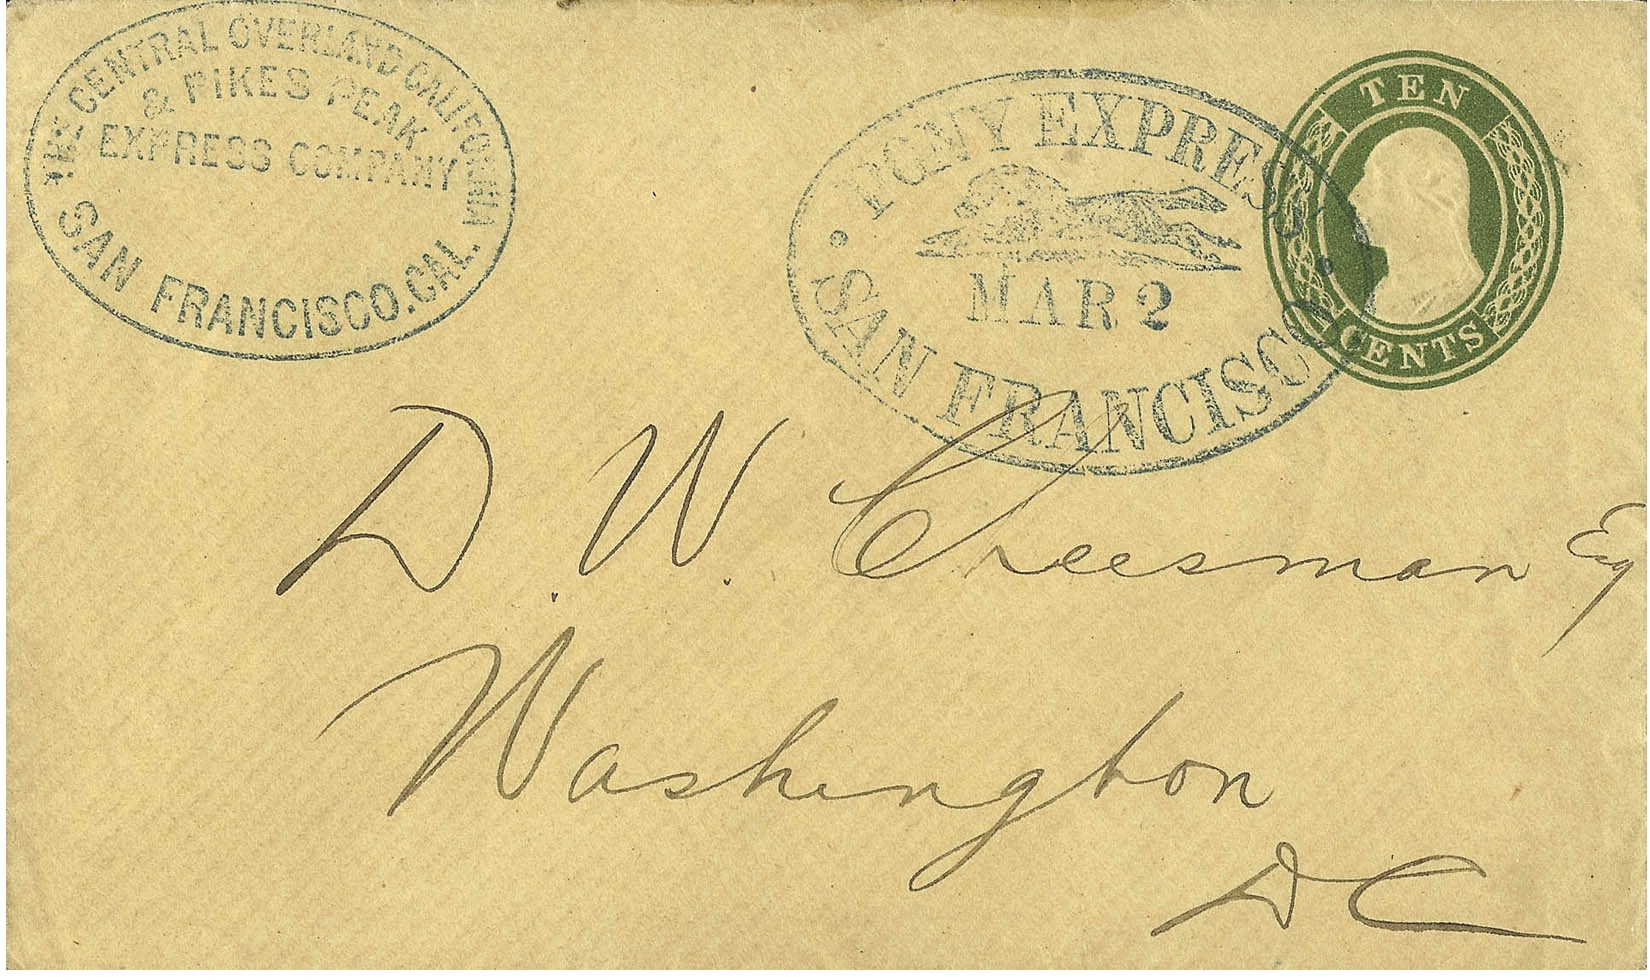 THE CENTRAL OVERLAND CALIFORNIA
& PIKES PEAK
EXPRESS COMPANY
SAN FRANCISCO. CAL.
PONY EXPRESS
MAR 2
SAN FRANCISCO
TEN
CENTS
D. W. Cheesman Esq
Washington
D C